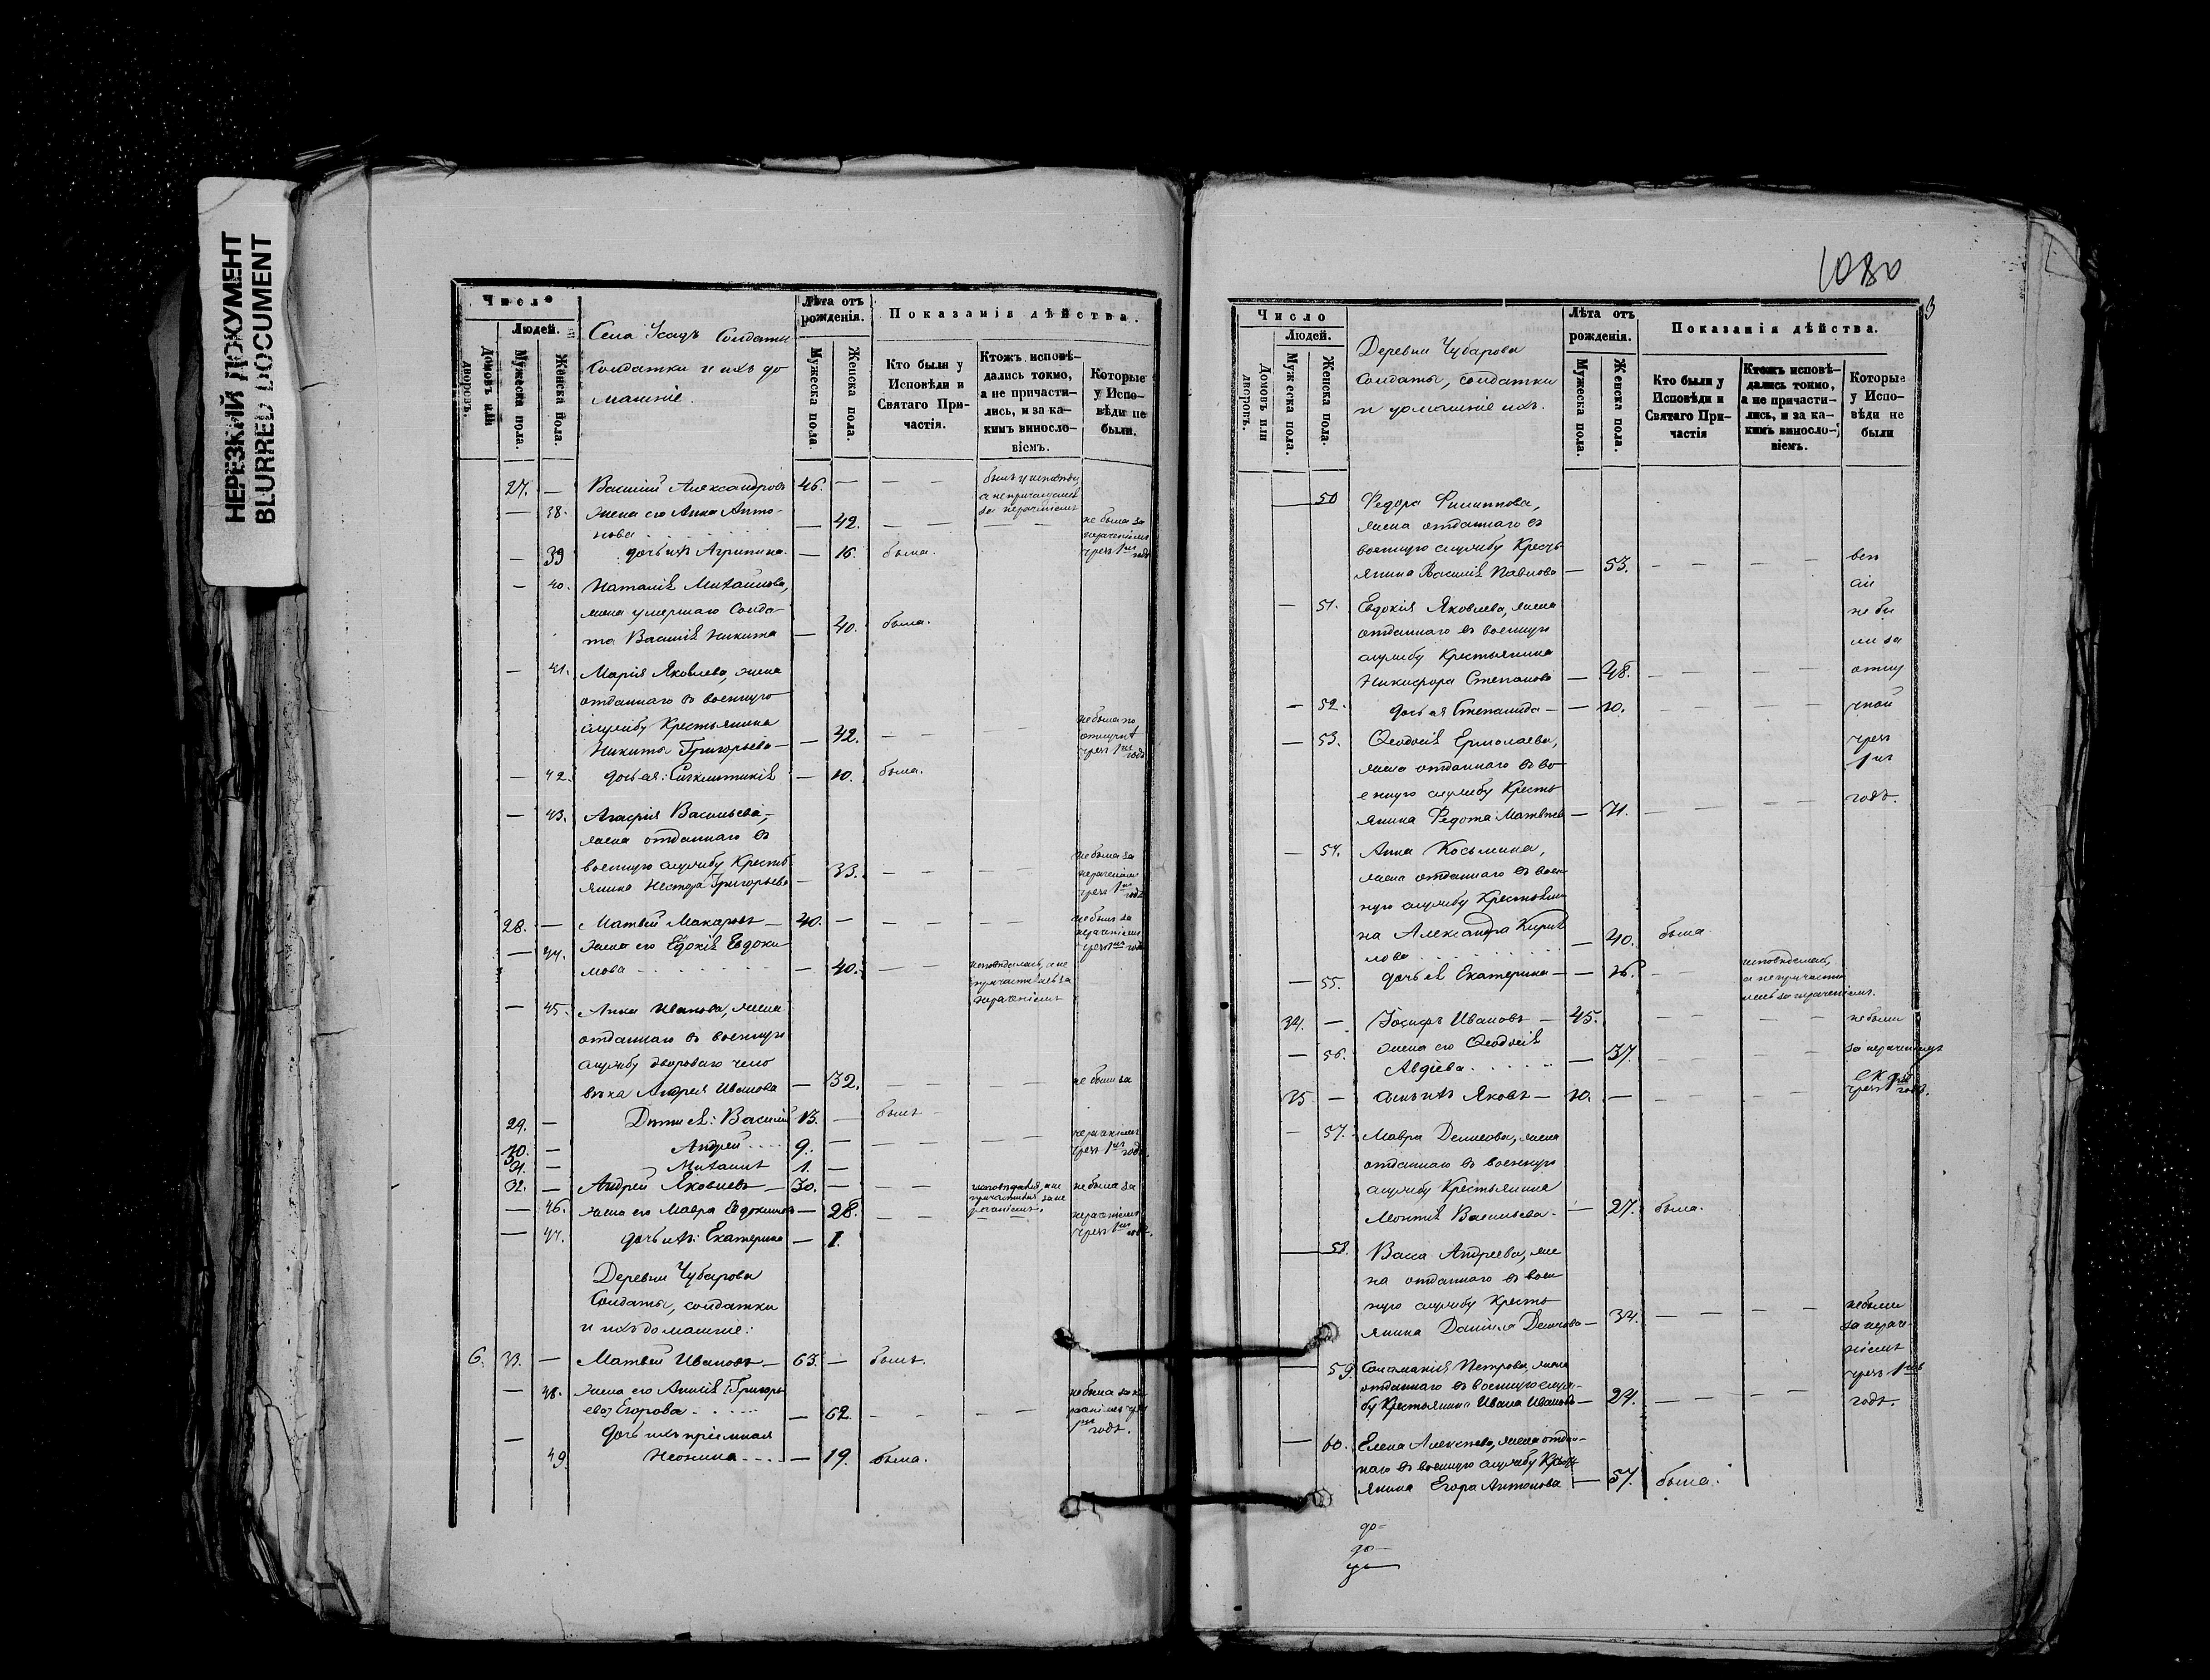 НЕРЕЗКИЙ ДОКУМЕНТ
BLURRED DOCUMENT
Число
Людей.
Домовъ или дворовъ.
Мужеска пола.
Женска пола.
Села Усадъ Солдаты
Солдатки и ихъ до
машніе.
Лѣта отъ
рожденія.
Мужеска пола
Женска пола.
Показанія дѣйства.
Кто были у
Исповѣди и
Святаго При-
частія.
Ктожъ исповѣ-
дались токмо,
а не причасти-
лись, и за ка-
кимъ винослo-
віемъ.
Которые
у Испо-
вѣди не
были.
27. — Василій Александровъ 46. — — — былъ у исповѣди,
а не причащался
за нераченіемъ
— 38. жена его Анна Анто-
нова — 42. — — — — не была за
нераченіемъ
чрез 1нъ годъ
— 39 дочь ихъ Агрипина — 16. была.
— 40. Наталія Михайлова,
жена умершаго Солда-
та Василія Никита — 40. была.
— 41. Марія Яковлева, жена
отданнаго въ военную
службу Крестьянина
Никиты Григорьева — 42. — — — — не была по
отлучкѣ
чрез 1нъ годъ
— 42. дочь ея: Синклитикія — 10. была.
— 43. Агафія Васильева,
жена отданнаго въ
военную службу Кресть
янина Нестора Григорьева — 33. — — — — не была за
нераченіем
чрез 1нъ годъ
28. — Матвей Макаровъ — 40. — — — — — не былъ за
нераченіем
чрез 1нъ годъ
— 44. жена его Евдокія Евдоки-
мова — 40. — — исповѣдалась, а не
причастилась за
нераченіемъ
— 45. Анна Иванова, жена
отданнаго въ военную
службу двороваго чело
вѣка Андрея Иванова — 32. — — — — не были за
29. — Дѣти ея: Василій 13. — былъ —
30. — Андрей 9. — — — — — нераченіем
чрез 1нъ годъ.
31. — Михаилъ 1. —
32. — Андрей Яковлевъ — 30. — — — исповѣдался, а не
причастился за не
раченіемъ. не была за
— 46. жена его Мавра Евдокимова — 28. — — — — нераченіем
чрез 1нъ годъ.
— 47. дочь ихъ: Екатерина — 1.
Деревни Чубарова
Солдаты, солдатки
и ихъ домашніе:
6. 33. — Матвей Ивановъ — 63. — былъ.
— 48. жена его Анисія Григорь
ева) Егорова — 62. — — — — не была за не
раченіем чрез
1нъ годъ.
— дочь ихъ пріемная
49. Неонила — 19. была.
1080
3
Число
Людей.
Домовъ или дворовъ.
Мужеска пола.
Женска пола.
Деревни Чубарова
Солдаты, солдатки
и домашніе ихъ.
Лѣта отъ
рожденія.
Мужеска пола.
Женска пола.
Показанія дѣйства.
Кто были у
Исповѣди и
Святаго При-
частія
Ктожъ исповѣ-
дались токмо,
а не причасти-
лись, и за ка-
кимъ винослo-
віемъ.
Которые
у Испо-
вѣди не
были
— 50 Федора Филиппова,
жена отданнаго въ
военную службу Кресть
янина Василія Павлова — 53. — — — —
— 51. Евдокія Яковлева, жена
отданнаго въ военную
службу Крестьянина
Никифора Степанова — 48. — — — —
не бы
ли за
отлу
чкой
чрезъ
1нъ
годъ.
— 52. дочь ея Степанида — — 10. — — — —
— 53. Ѳеодосія Ермолаева,
жена отданнаго въ во-
енную службу Кресть
янина Федота Матвѣева — 71. — — — —
— 54. Анна Косьмина,
жена отданнаго въ воен-
ную службу Крестьяни
на Александра Кирил
лова — 40. была
— 55. дочь ея Екатерина — — 16. — — исповѣдалась,
а не причасти
лась за нераченіемъ.
34. — Іосифъ Ивановъ — 45. — — — — не были
— 56. жена его Ѳеодосія
Авдіева — 37. — — — — за нераченіемъ
35 — сынъ ихъ Яковъ — 10. — — — — — чрез 1нъ годъ.
— 57. Мавра Денисова, жена
отданнаго въ военную
службу Крестьянина
Монтія Васильева — 27. была.
— 58. Васса Андреева, же
на отданнаго въ воен-
ную службу Кресть
янина Даніила Денисова — 34. — — — — не были
за нераче-
ніемъ
чрезъ 1нъ
— 59. Соломанія Петрова, жена
отданнаго въ военную служ-
бу Крестьянина Ивана Иванова — 24. — — — — годъ.
— 60. Елена Алексѣева, жена отдан-
наго въ военную службу Кресть
янина Егора Антонова — 57. была.